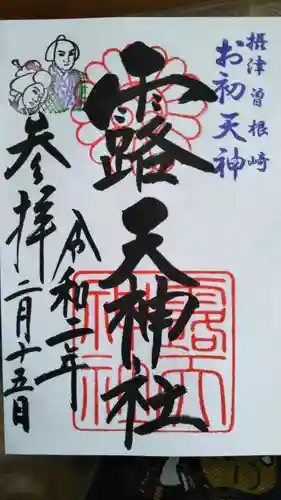 摂津曽根崎
お初天神
露天神社
参拝
令和二年
二月十五日
露天
神社